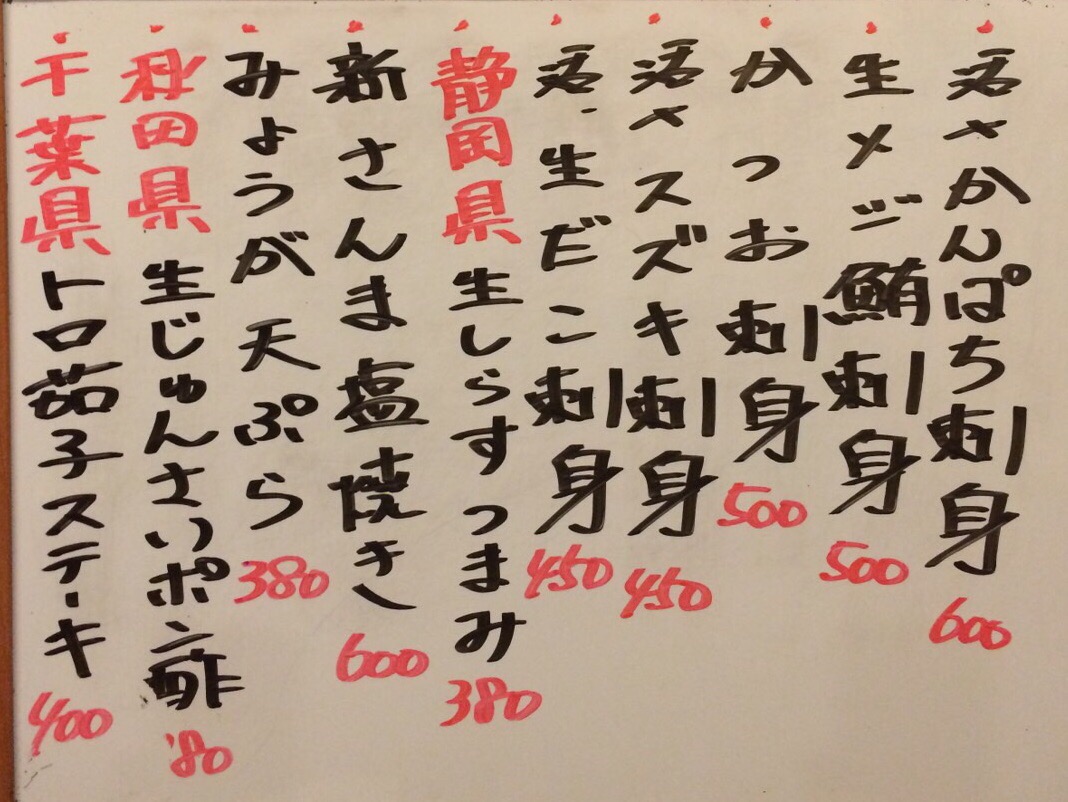 活〆かんぱち刺身 600
生メジ鮪刺身 500
かつお刺身 500
活〆スズキ刺身 450
活、生だこ刺身 450
静岡県 生しらすつまみ 380
新さんま塩焼き 600
みょうが天ぷら 380
秋田県 生じゅんさいポン酢 '80
千葉県 トロ茄子ステーキ 400